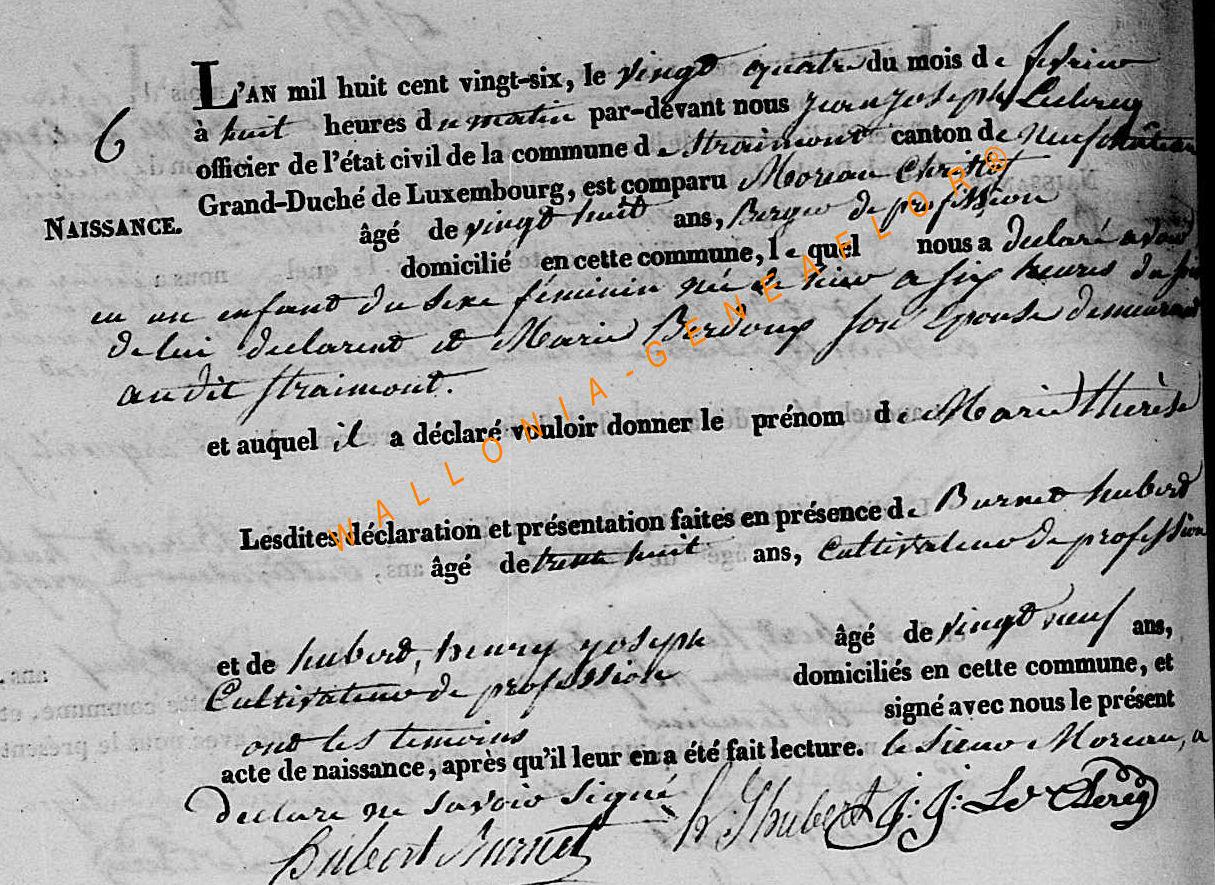 L'AN mil huit cent vingt-six, le vingt quatre du mois de fevrier
6
à huit heures du matin par-devant nous jean joseph Leclercq
officier de l'état civil de la commune de Straimont canton de neufchâteau
Grand-Duché de Luxembourg, est comparu Moreau Christ
NAISSANCE.
âgé de vingt huit ans, Berger de profission
domicilié en cette commune, le quel nous a declaré avoir
eu un enfant du sexe féminin né hier a six heures du soir
de lui declarent et Marie Berdoux son Epouse demeurant
audit straimont.
et auquel il a déclaré vouloir donner le prénom de Marie thérèse
Lesdites déclaration et présentation faites en présence de Burnet hubert
âgé de trente huit ans, Cultivateur de profission
et de hubert, henry joseph âgé de vingt neuf ans,
Cultivateur de profission domiciliés en cette commune, et
ont les temoins signé avec nous le présent
acte de naissance, après qu'il leur en a été fait lecture. le sieur Moreau, a
declare ne savoir signé
hubert Burnet h J hubert J: J: Le Clercq
WALLONIA-GENEAFLOR®